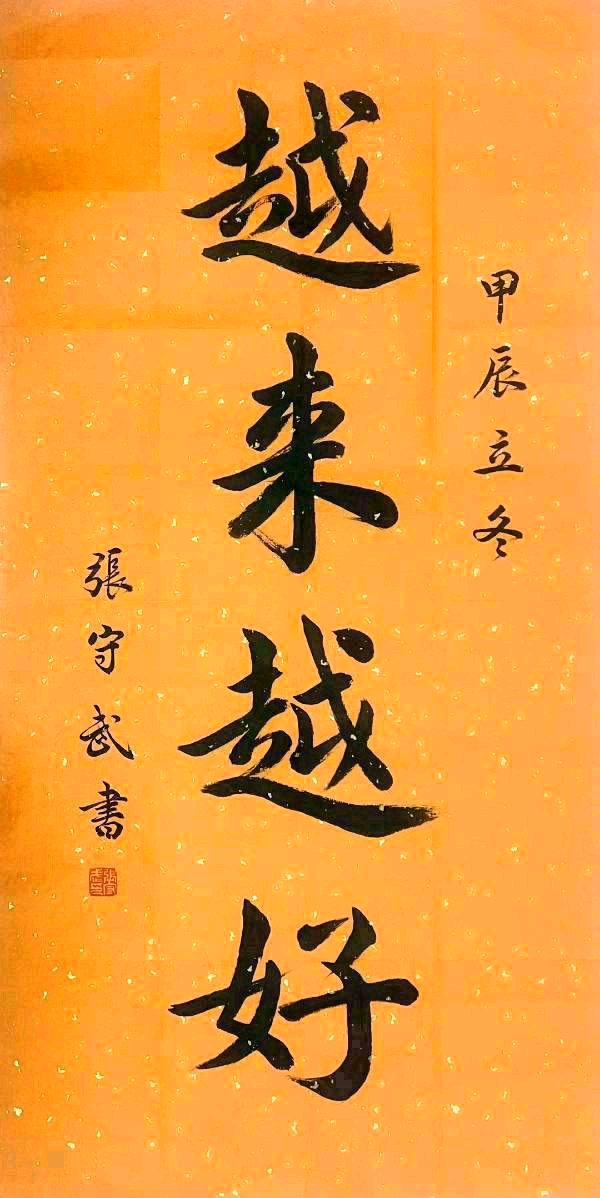 甲辰立冬
越来越好
張守武書